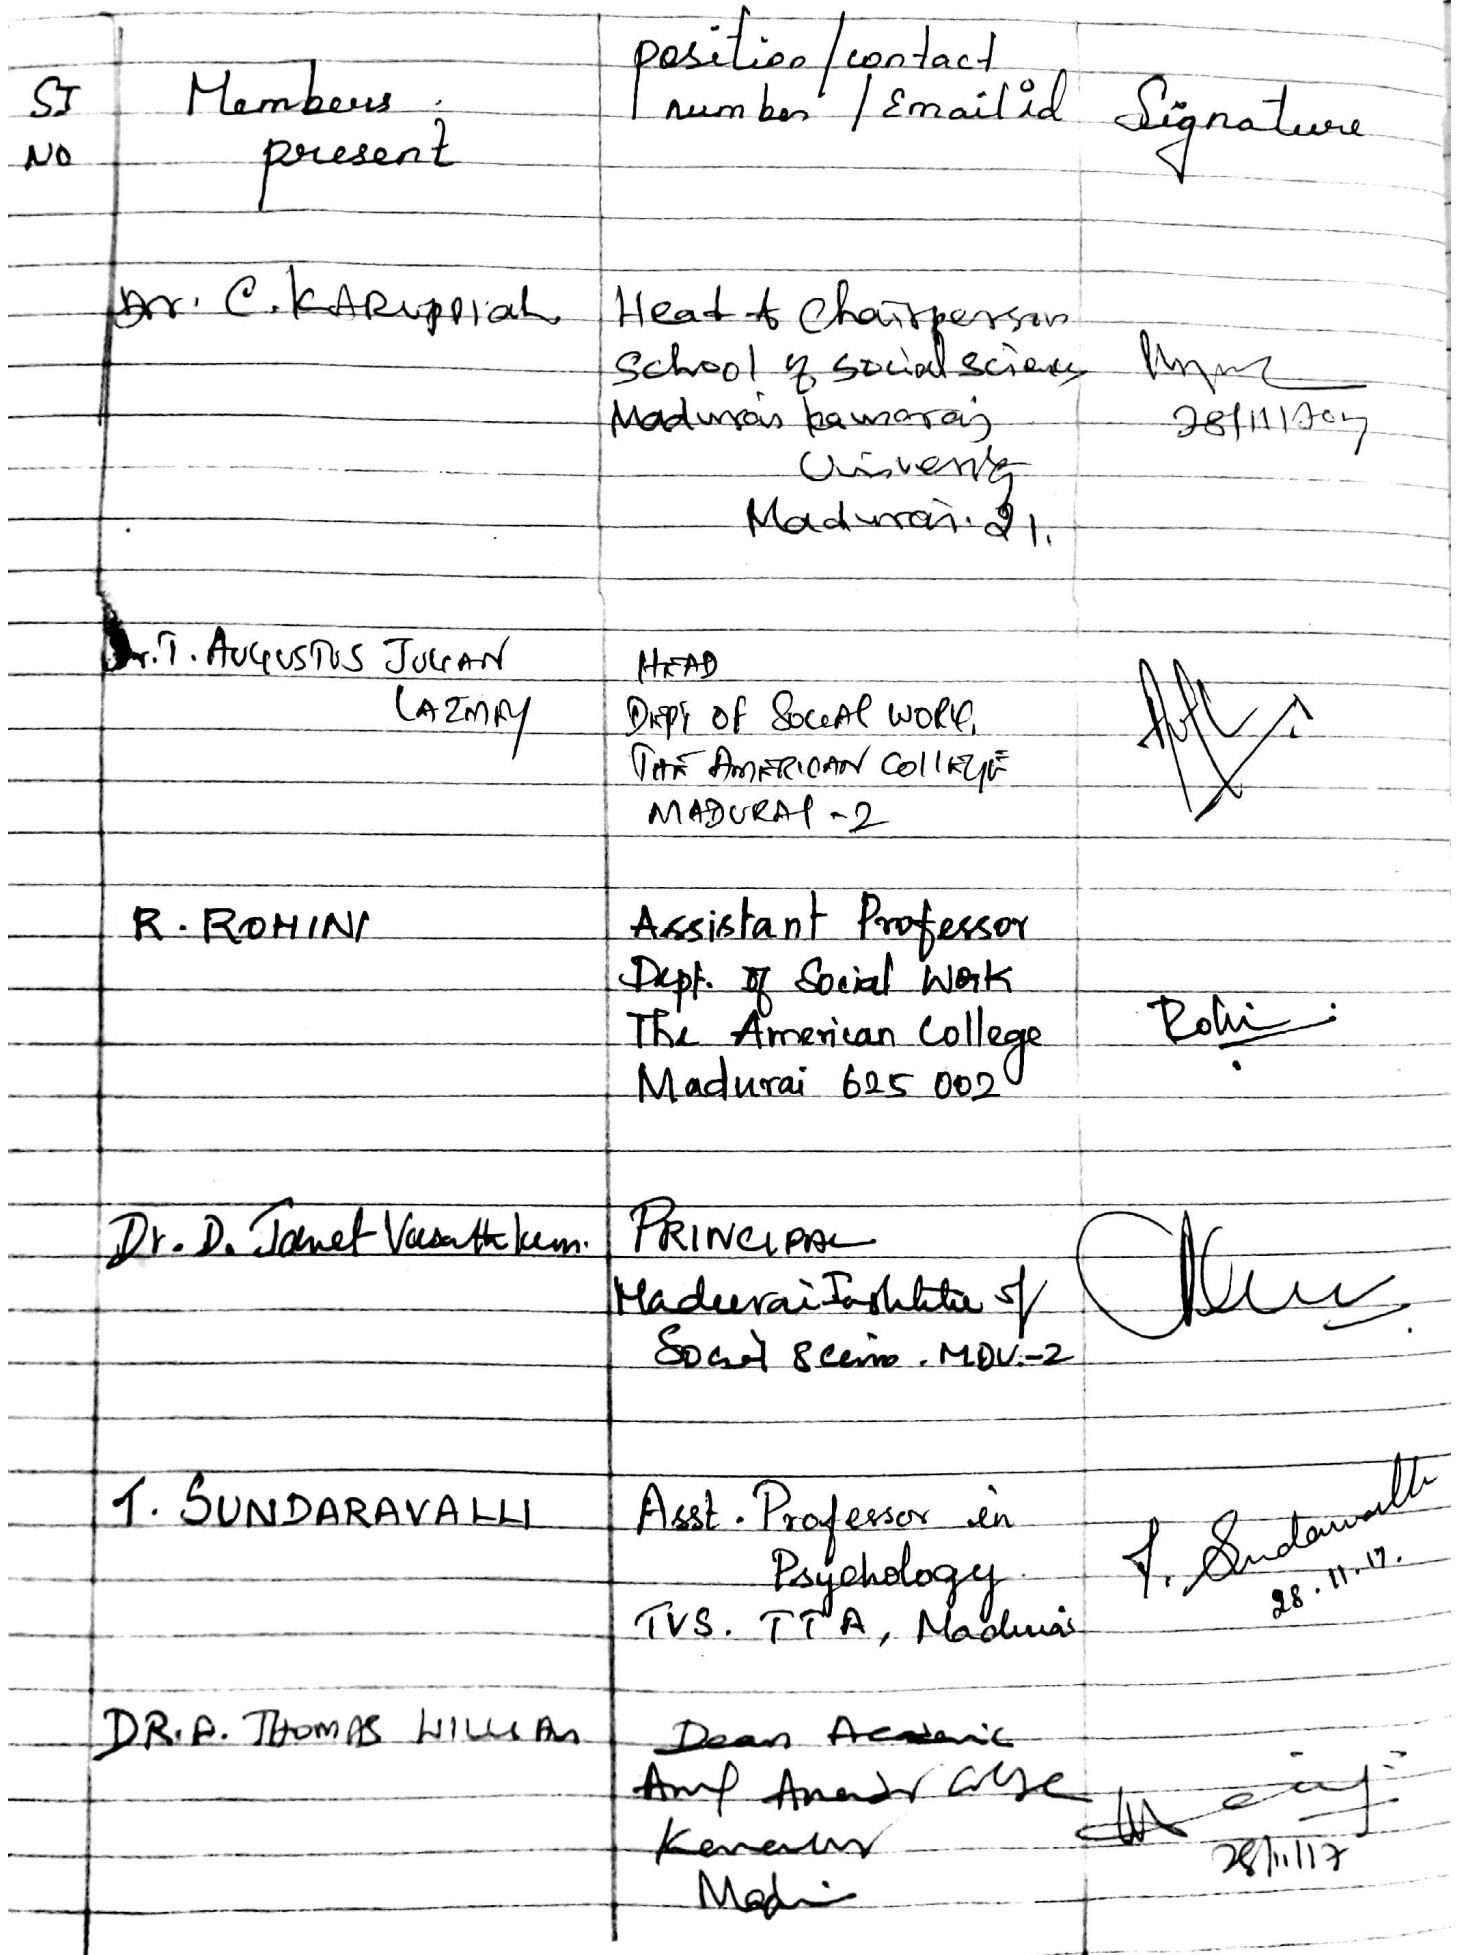 Sl
No
Members
present
position/contact
number/Email id
Signature
Dr. C. KARUPPIAH
Head & Chairperson
School of Social Sciences
Madurai Kamaraj
University
Madurai. 21.
28/11/2017
Dr. T. AUGUSTUS JULIAN
LAZMEY
HEAD
DEPT OF SOCIAL WORK,
THE AMERICAN COLLEGE
MADURAI - 2
R. ROHINI
Assistant Professor
Dept. of Social Work
The American College
Madurai 625 002
Rohi
Dr. D. Janet Vasantha
PRINCIPAL
Madurai Institute of
Social Science. MDU.-2
T. SUNDARAVALLI
Asst. Professor in
Psychology
TVS. TTA, Madurai
T. Sundaravalli
28.11.17.
DR. A. THOMAS WILLIAM
Dean Academic
College
Madurai
28/11/17